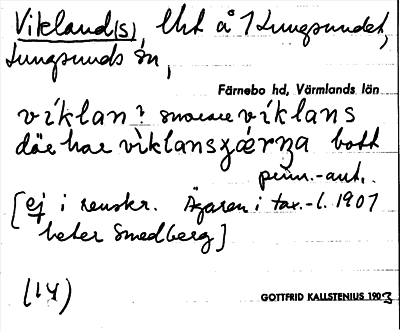 Vikland(s), lht å 1 Lungsundet,
Lungsunds sn,
Färnebo hd, Värmlands län
viklan? snarare viklans
där har viklansgærna bott
[ej i renskr. Ägaren i tax.-l. 1907
heter Smedberg]
(14)
GOTTFRID KALLSTENIUS 1903